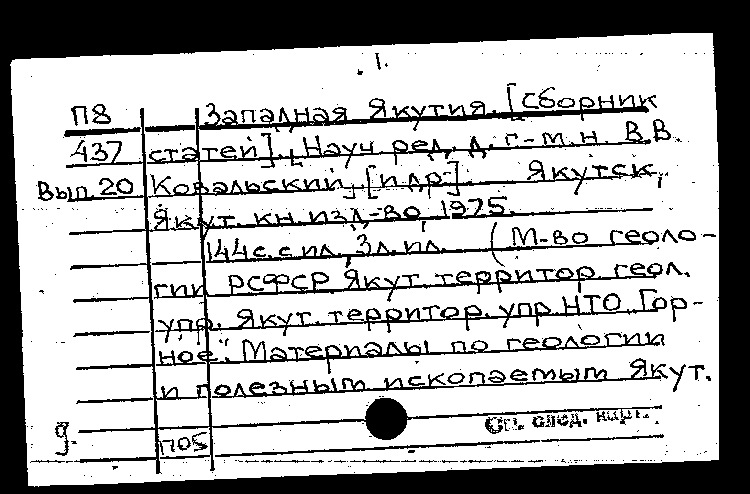 1.
П8 Западная Якутия. [Сборник
437 статей]. [Науч. ред. д. г-м. н. В.В.
Вып. 20 Ковальский], [и др.]. Якутск,
Якут. кн. изд-во, 1975.
144 с. с ил., 3 л. ил. (М-во геоло-
гии РСФСР Якут. территор. геол.
упр. Якут. территор. упр. НТО „Гор-
ное". Материалы по геологии
и полезным ископаемым Якут.
д. См. след. карт.
П05